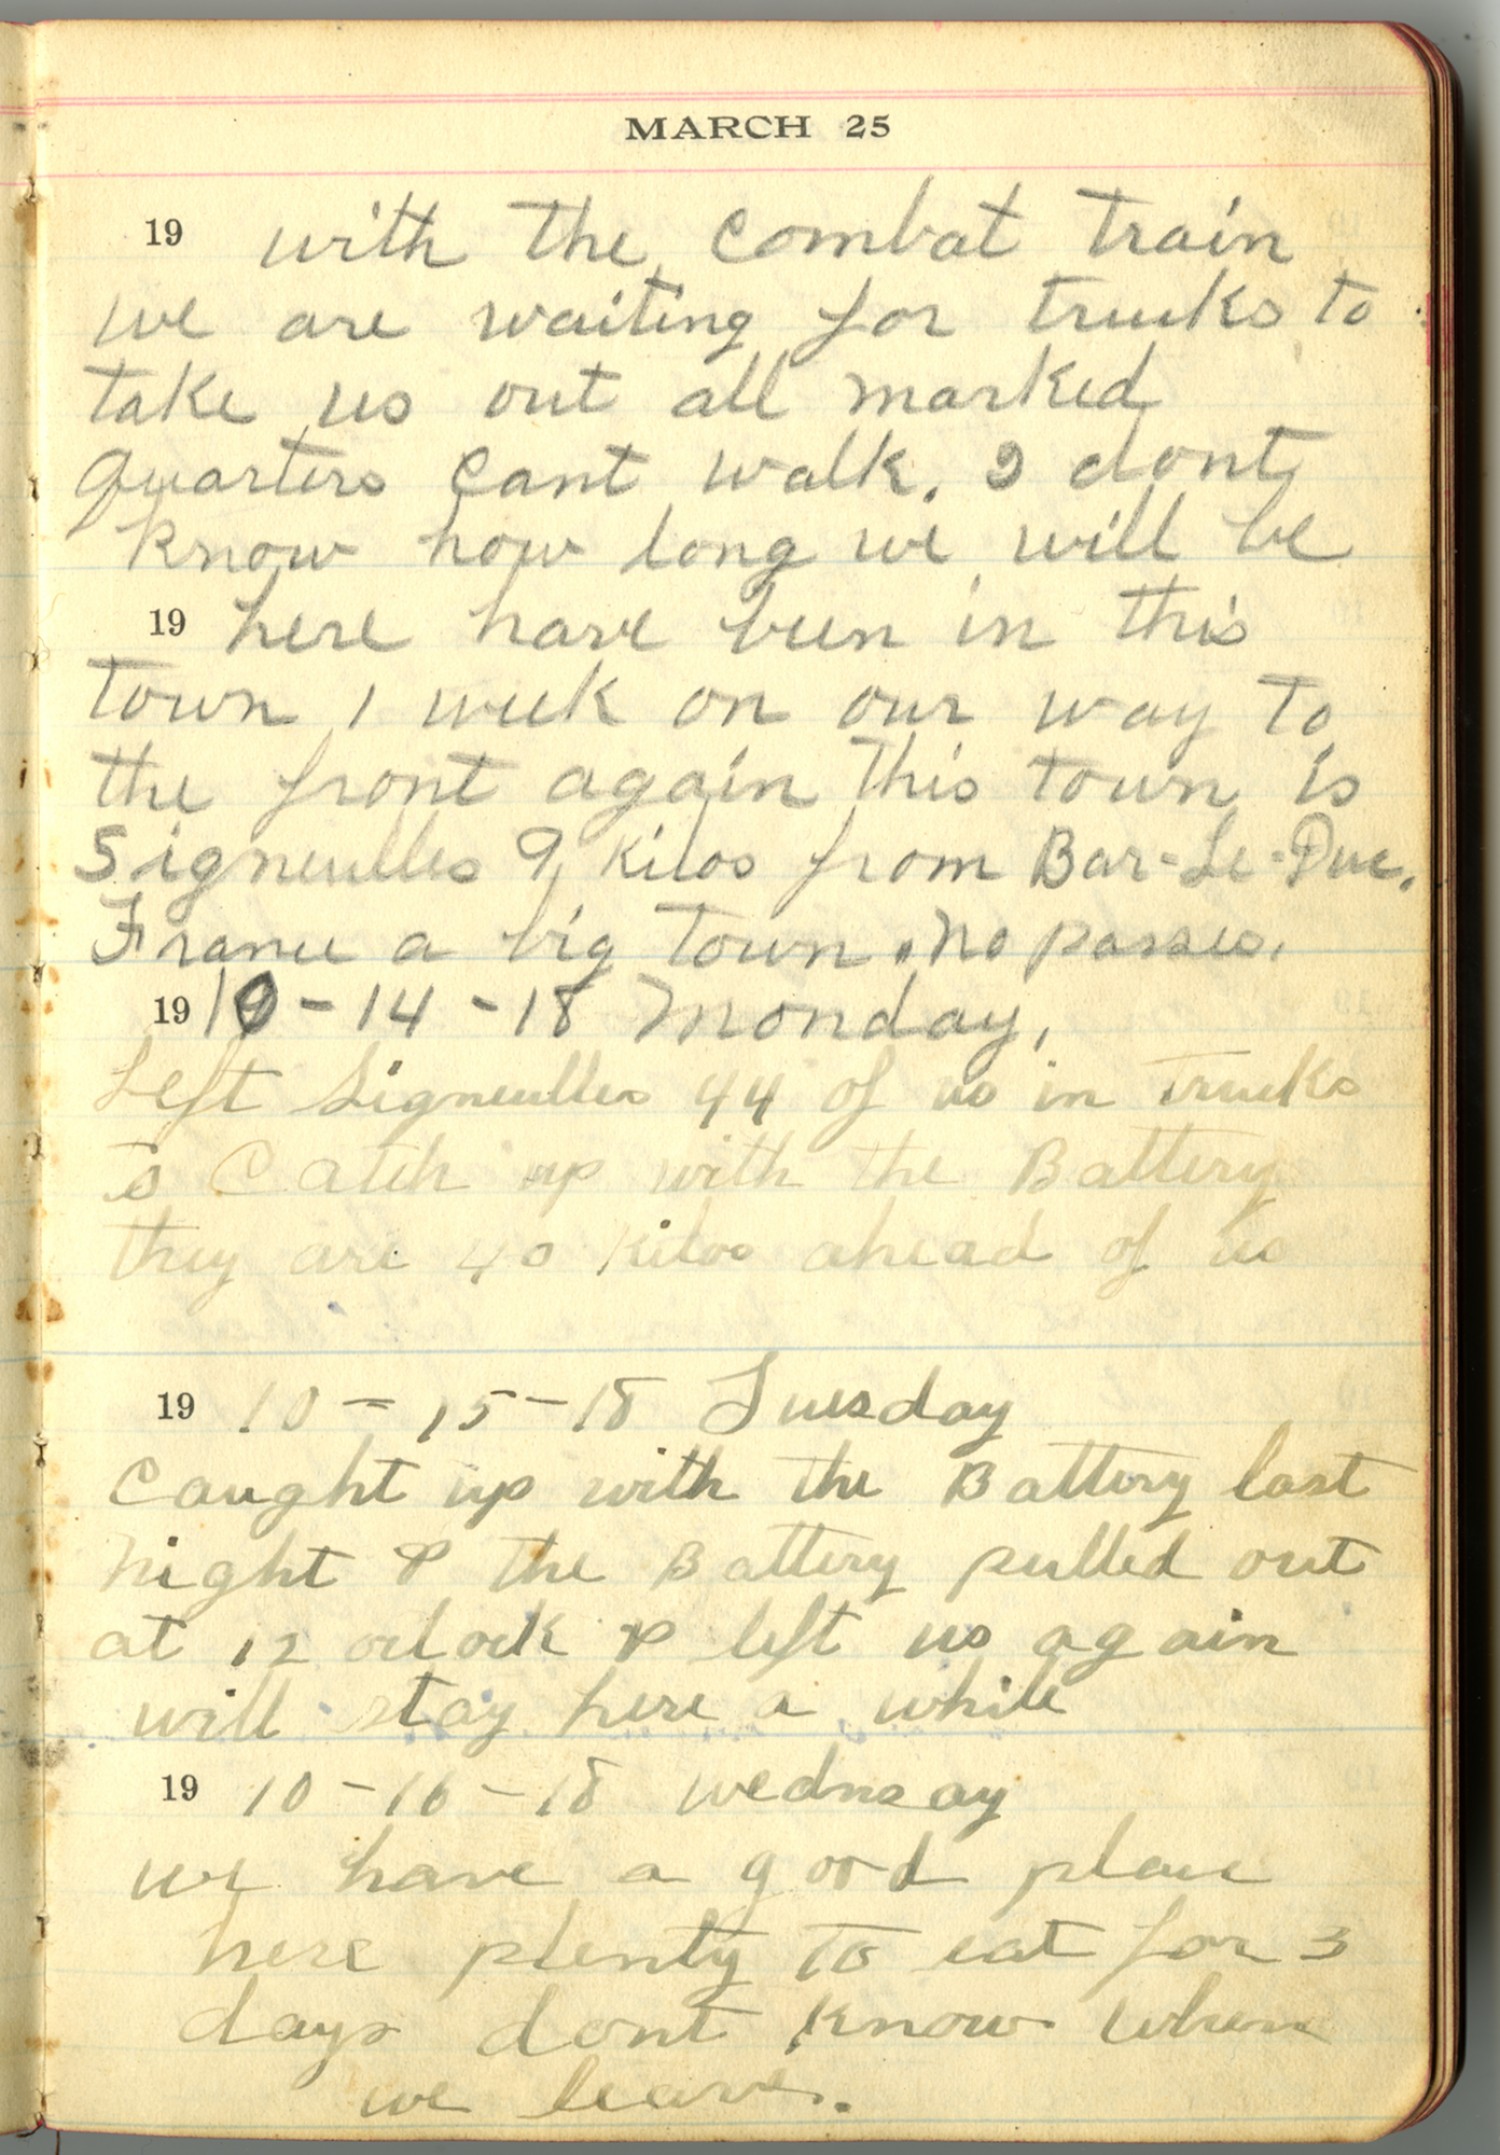 MARCH 25
19 with the combat train
we are waiting for trucks to
take us out all marked
quarters cant walk. I dont
know how long we will be
19 here have been in this
town 1 week on our way to
the front again This town is
Signeulles 9 kilos from Bar-Le-Duc.
France a big town. no passes.
19 10-14-18 Monday,
Left Signeulles 44 of us in trucks
to Catch up with the Battery
they are 40 kilos ahead of us
19 10-15-18 Tuesday
Caught up with the Battery last
night & the Battery pulled out
at 12 oclock & left us again
will stay here a while
19 10-16-18 Wednsay
we have a good place
here plenty to eat for 3
days dont know when
we leave.